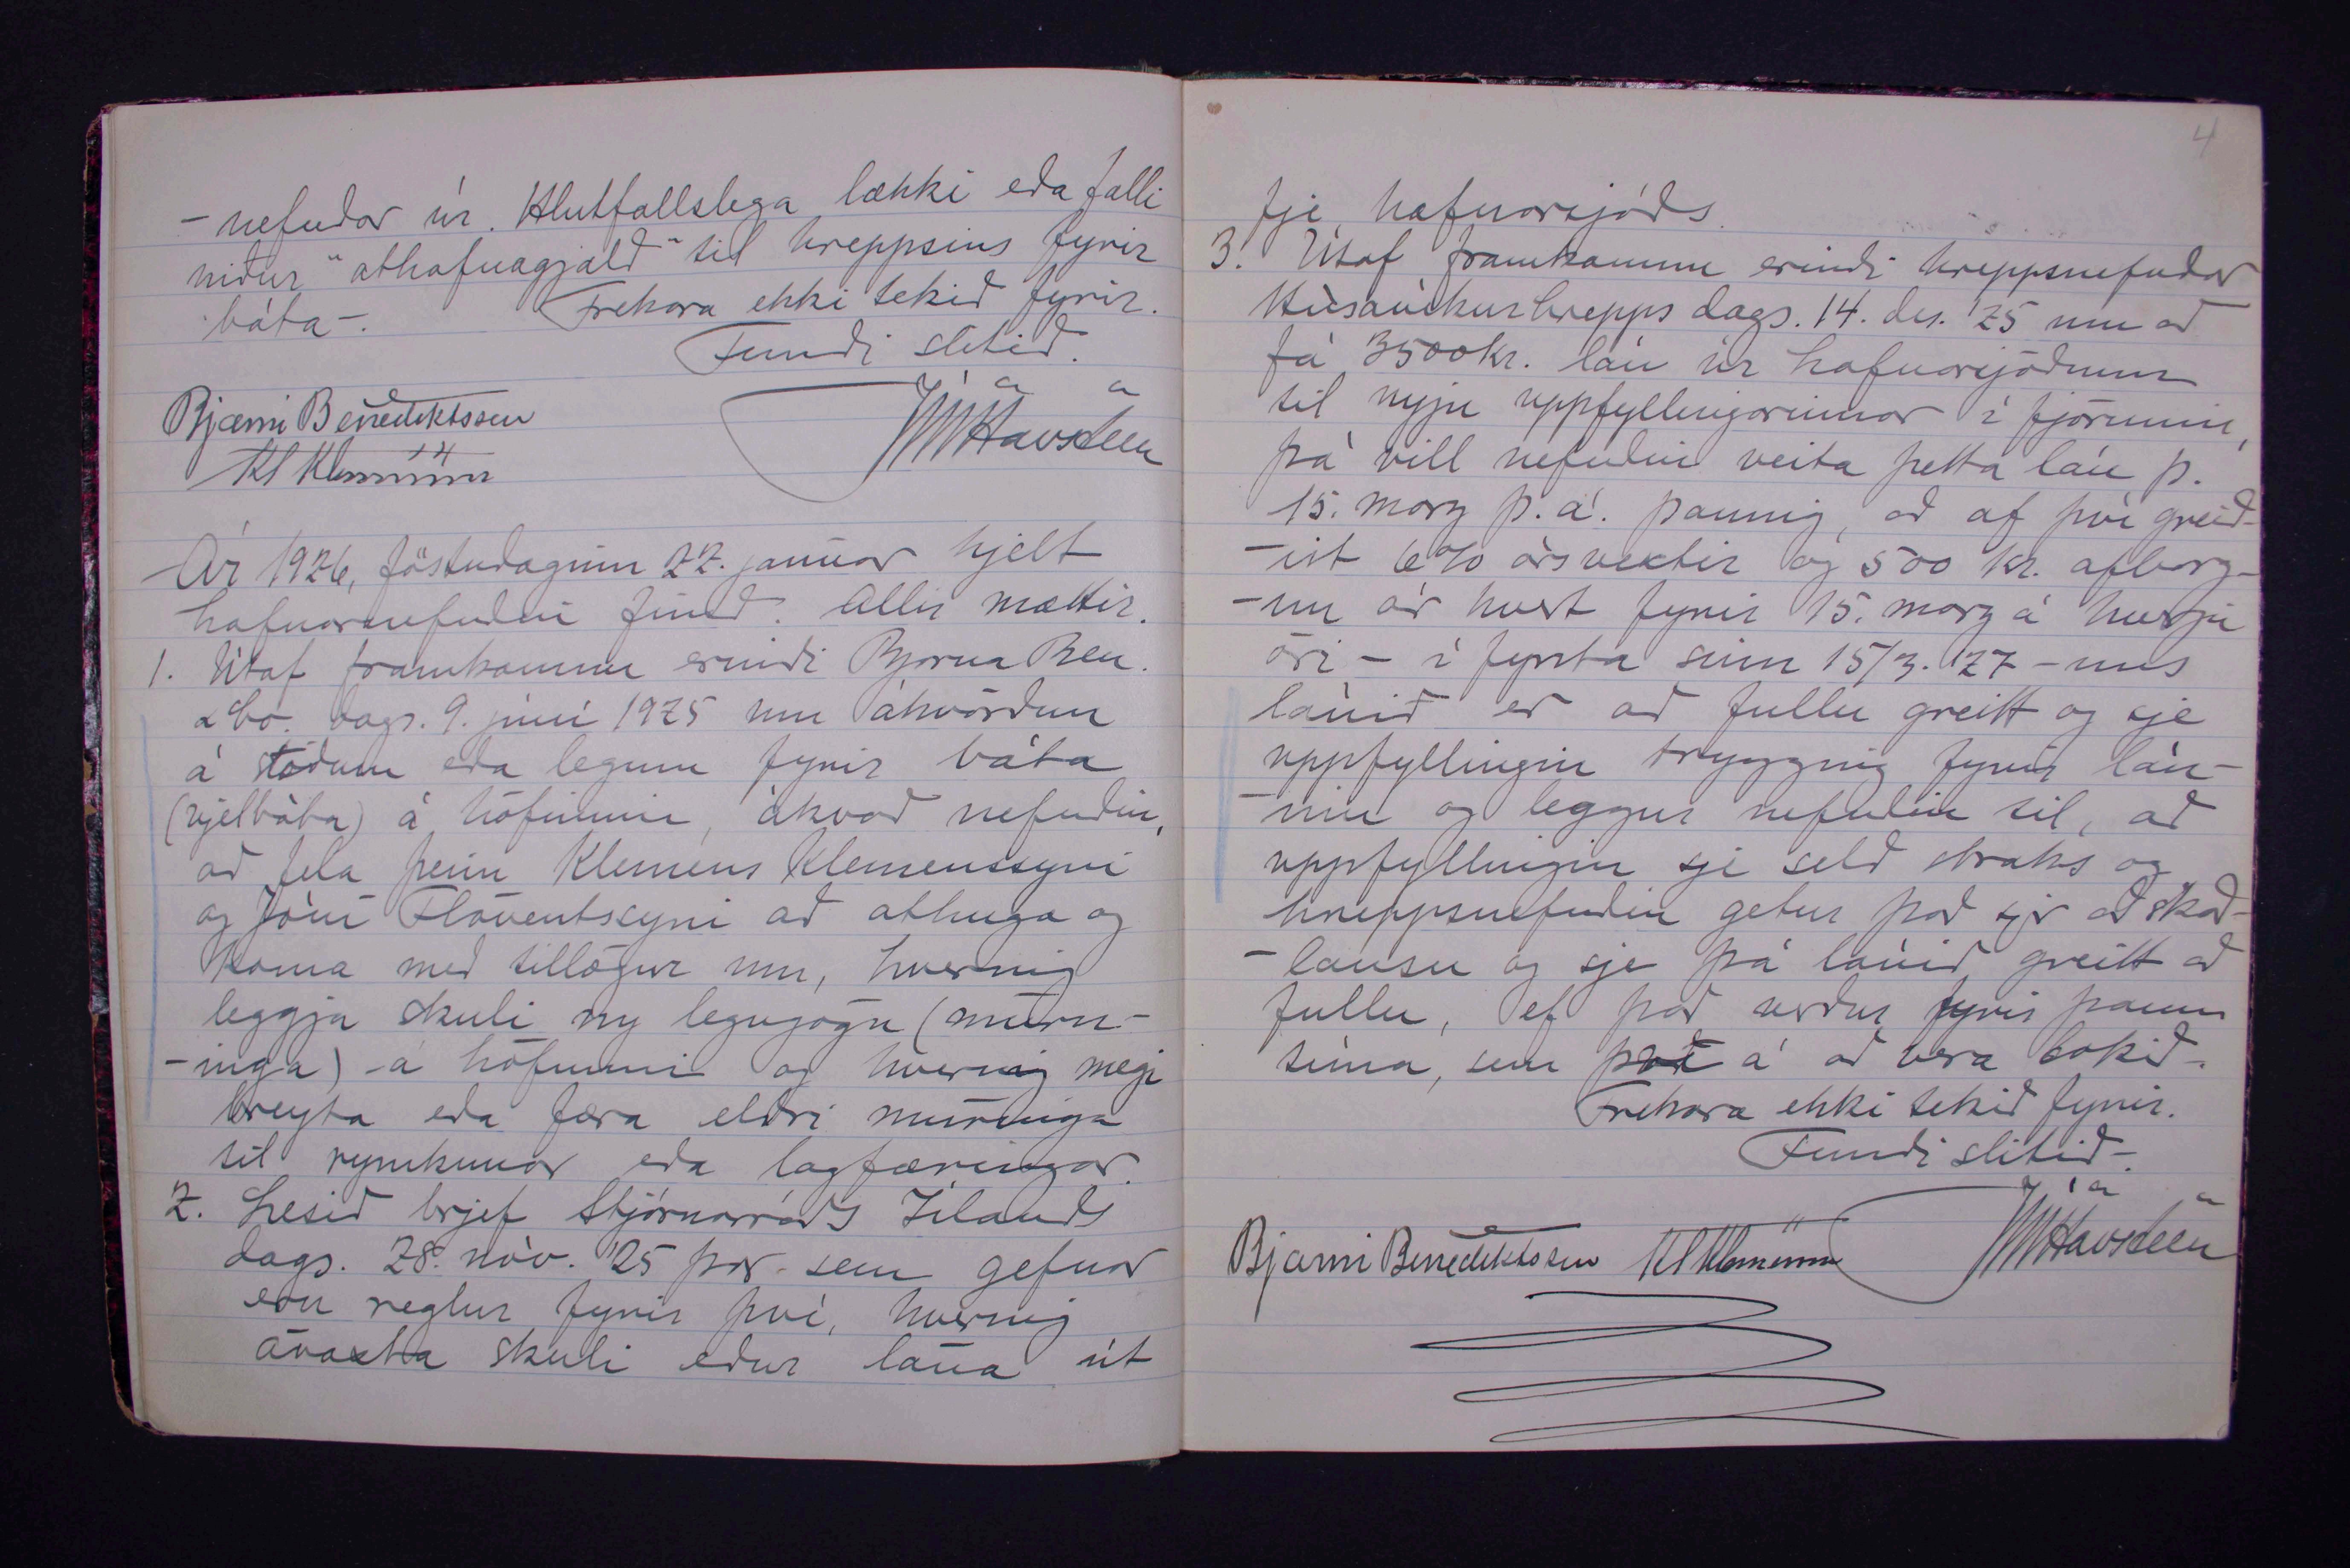 -nefndar úr. Hlutfallslega lækki eða falli
niður "athafnagjald" til hreppsins fyrir
báta-. Frekara ekki tekið fyrir.
Fundi slitið.
Bjarni Benediktsson
JúlHavsteen
Kl Klemensson
Ár 1926, föstudaginn 22. janúar hjelt
hafnarnefndin fund. Allir mættir.
1. Útaf framkomnu erindi Bjarna Ben.
& Co. dags. 9. júní 1925 um ákvörðun
á stöðum eða legum fyrir báta
(vjelbáta) á höfninni, ákvað nefndin,
að fela þeim Klemens Klemenssyni
og Jóni Flóventssyni að athuga og
koma með tillögur um, hvernig
leggja skuli ný legugögn (múrn-
-inga) á höfninni og hvernig megi
breyta eða færa eldri múrninga
til rýmkunar eða lagfæringar.
2. Lesið brjef Stjórnarráðs Íslands
dags. 28. nóv. '25 þar sem gefnar
eru reglur fyrir því, hvernig
ávaxta skuli eður lána út
4
fje hafnarsjóðs.
3. Útaf framkomnu erindi hreppsnefndar
Húsavíkurhrepps dags. 14. des. '25 um að
fá 3500kr. lán úr hafnarsjóðnum
til nýju uppfyllingarinnar í fjörunni,
þá vill nefndin veita þetta lán þ.
15. marz þ. á. þannig, að af því greið-
-ist 6% ársvextir og 500 kr. afborg-
-un ár hvert fyrir 15. marz á hverju
ári - í fyrsta sinn 15/3. '27 - uns
lánið er að fullu greitt og sje
uppfyllingin trygging fyrir lán-
-inu og leggur nefndin til, að
uppfyllingin sje seld straks og
hreppsnefndin getur það sjer að skað-
-lausu og sje þá lánið greitt að
fullu, ef það verður fyrir þann
tíma, sem það á að vera lokið.
Frekara ekki tekið fyrir.
Fundi slitið-.
Bjarni Benediktsson Kl Klemensson JúlHavsteen